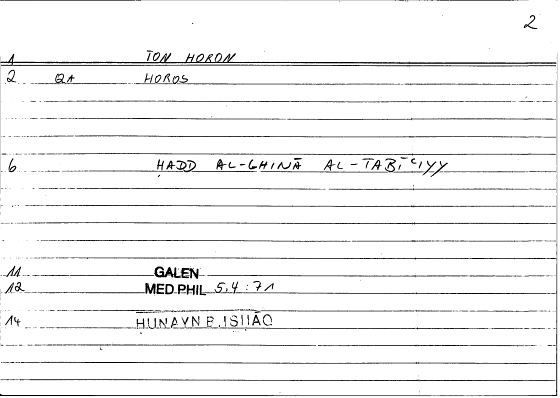 2
1 TON HORON
2 QA HOROS
6 ḤADD AL-GHINĀ AL-ṬABĪʿIYY
11 GALEN
12 MED PHIL 5,4 : 71
14 ḤUNAYN B. ISḤĀQ